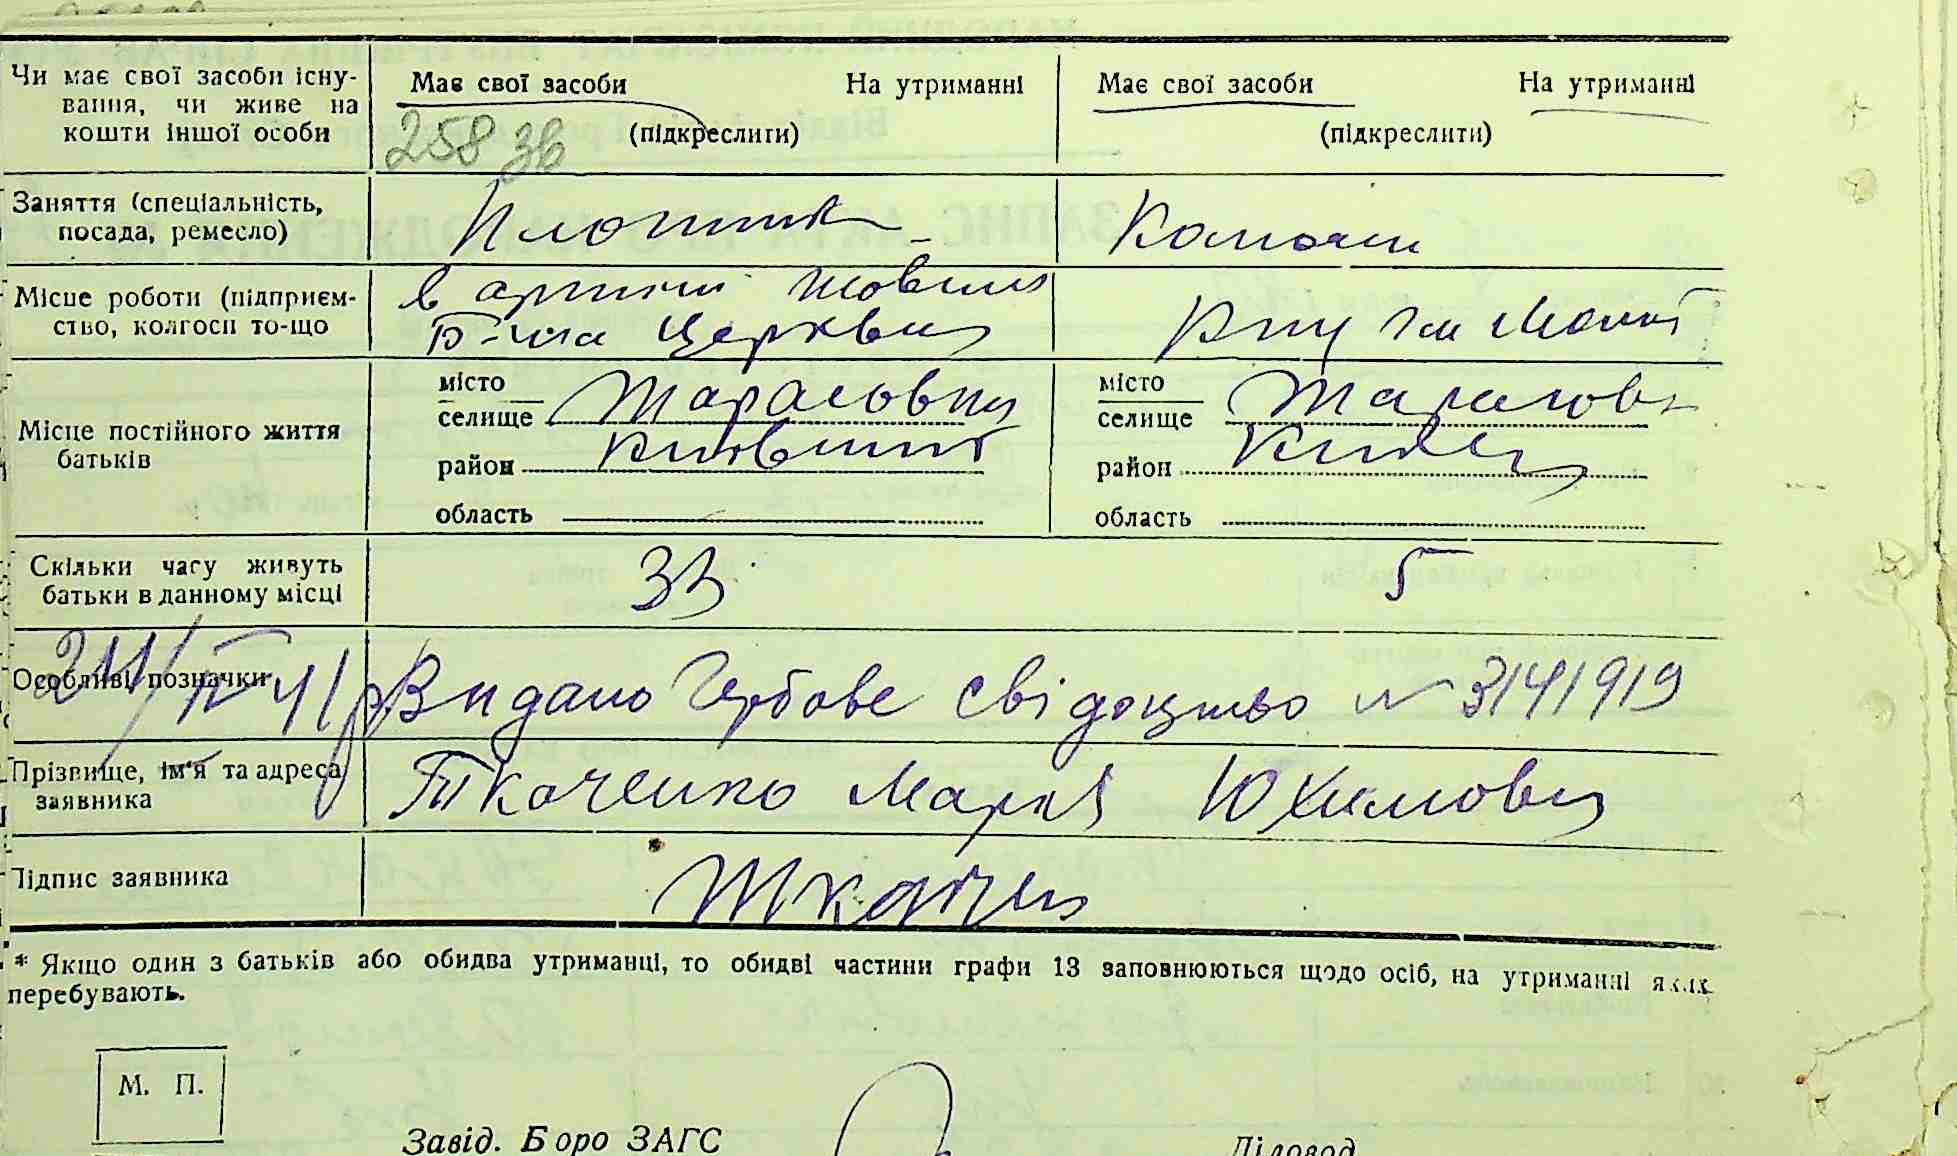 Чи має свої засоби існування, чи живе на кошти іншої особи
Має свої засоби На утриманні
(підкреслити)
258 зв
Має свої засоби На утриманні
(підкреслити)
Заняття (спеціальність, посада, ремесло)
Плотник
Місце роботи (підприємство, колгосп то-що
в артілі
Б-ла Церква
Місце постійного життя батьків
місто
селище Тарасовка
район
область
місто
селище
район
область
Скільки часу живуть батьки в данному місці
33
5
Особливі позначки
24/IV 41 р Видано Гербове свідоцтво № 3141919
Прізвище, ім'я та адреса заявника
Ткаченко Марк Юхимович
Підпис заявника
* Якщо один з батьків або обидва утриманці, то обидві частини графи 13 заповнюються щодо осіб, на утриманні яких
перебувають.
М. П.
Завід. Бюро ЗАГС
Діловод